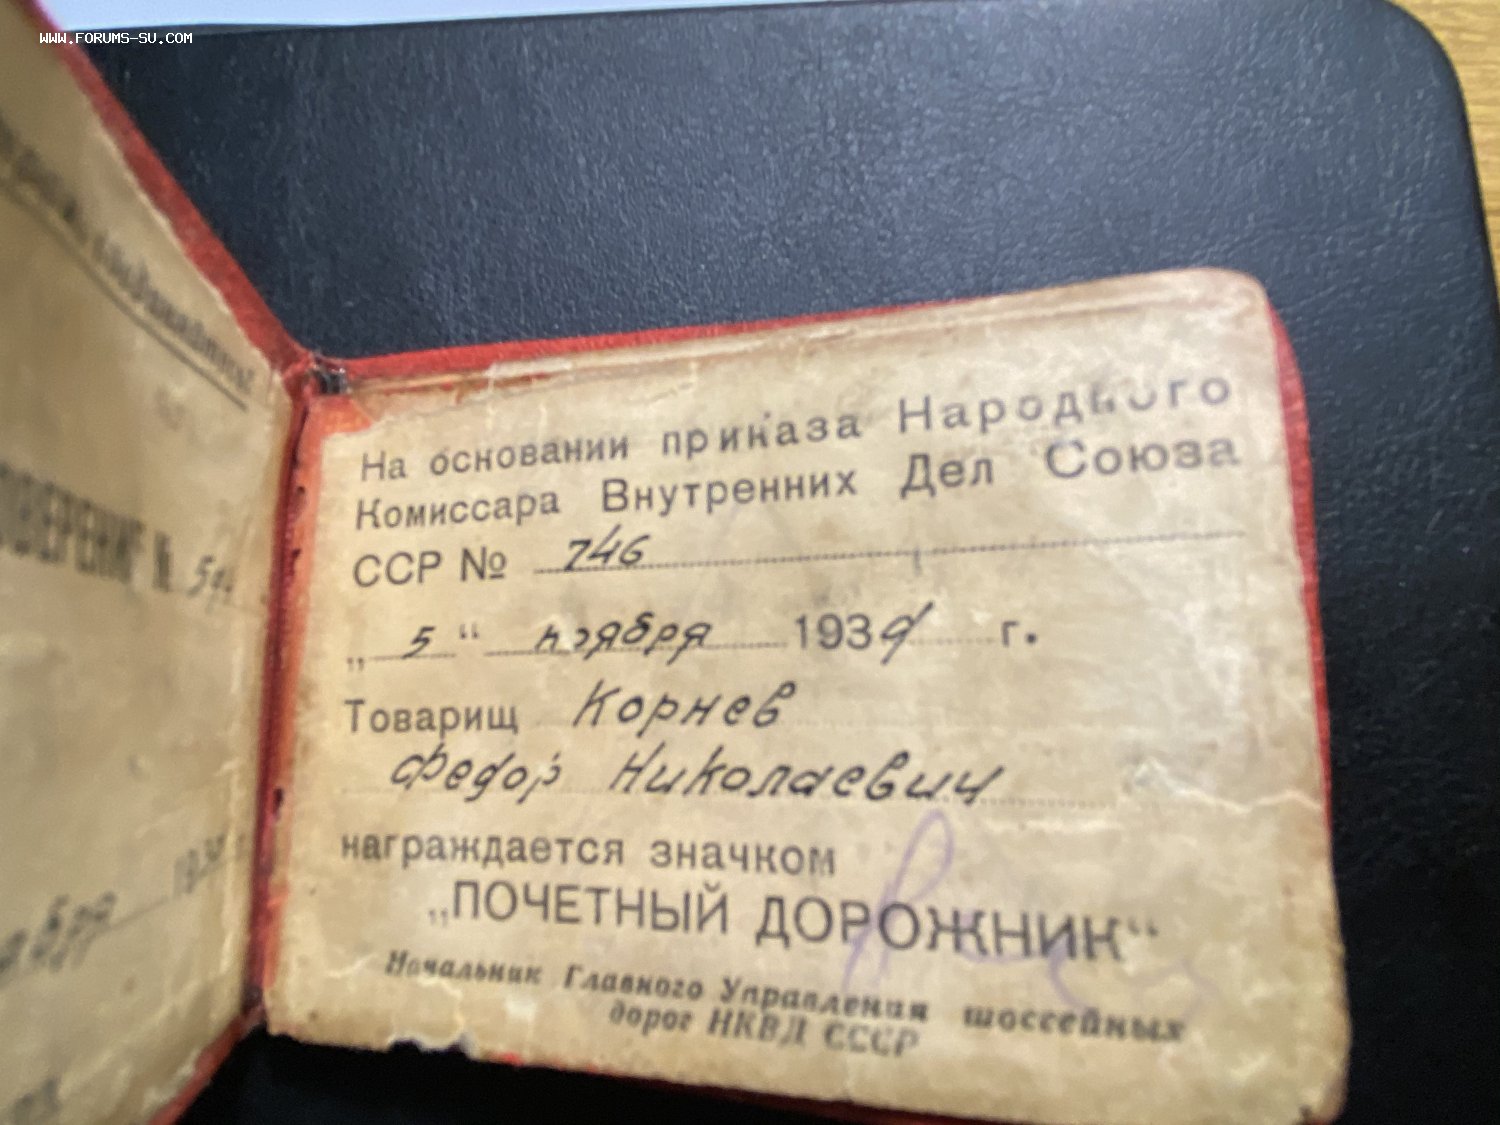 WWW.FORUMS-SU.COM
На основании приказа Народного
Комиссара Внутренних Дел Союза
ССР № 746
„5“ ноября 1939 г.
Товарищ Корнев
Федор Николаевич
награждается значком
„ПОЧЕТНЫЙ ДОРОЖНИК“
Начальник Главного Управления шоссейных
дорог НКВД СССР